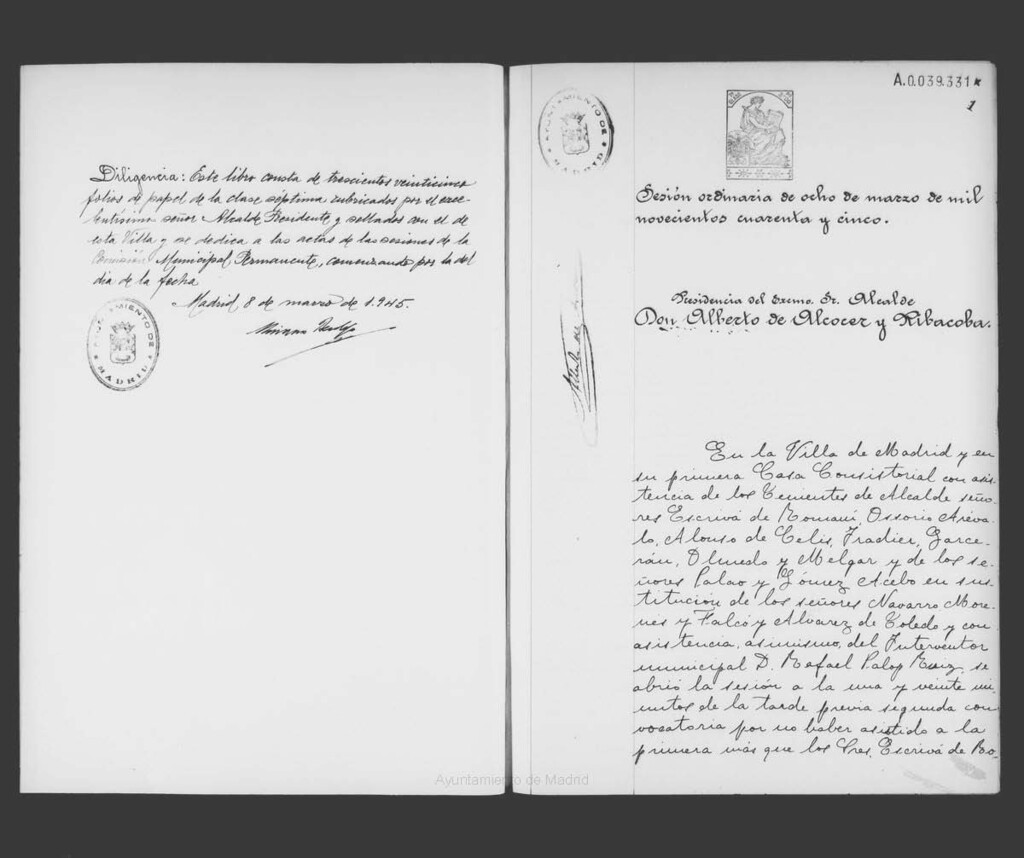 Diligencia: Este libro consta de trescientos veinticinco
folios de papel de la clase séptima rubricados por el exce-
lentísimo señor Alcalde Presidente y sellados con el de
esta Villa y se dedica a las actas de las sesiones de la
Comisión Municipal Permanente, comenzando por la del
día de la fecha
Madrid 8 de marzo de 1.945.
AYUNTAMIENTO DE
MADRID
A.0.039.331*
1
AYUNTAMIENTO DE
MADRID
Sesión ordinaria de ocho de marzo de mil
novecientos cuarenta y cinco.
Presidencia del Excmo. Sr. Alcalde
Don Alberto de Alcocer y Ribacoba.
En la Villa de Madrid y en
su primera Casa Consistorial con asis
tencia de los Tenientes de Alcalde seño-
res Escrivá de Romaní, Ossorio Aréva-
lo, Alonso de Celis, Fradier, Garce-
rán, Olmedo y Melgar y de los se-
ñores Palao y Gómez Acebo en sus-
titución de los señores Navarro More-
nés y Falcó y Alvarez de Toledo y con
asistencia, asimismo, del Interventor
municipal D. Rafael Palop Ruiz, se
abrió la sesión a la una y veinte mi-
nutos de la tarde previa segunda con
vocatoria por no haber asistido a la
primera más que los Sres. Escrivá de Ro-
Ayuntamiento de Madrid